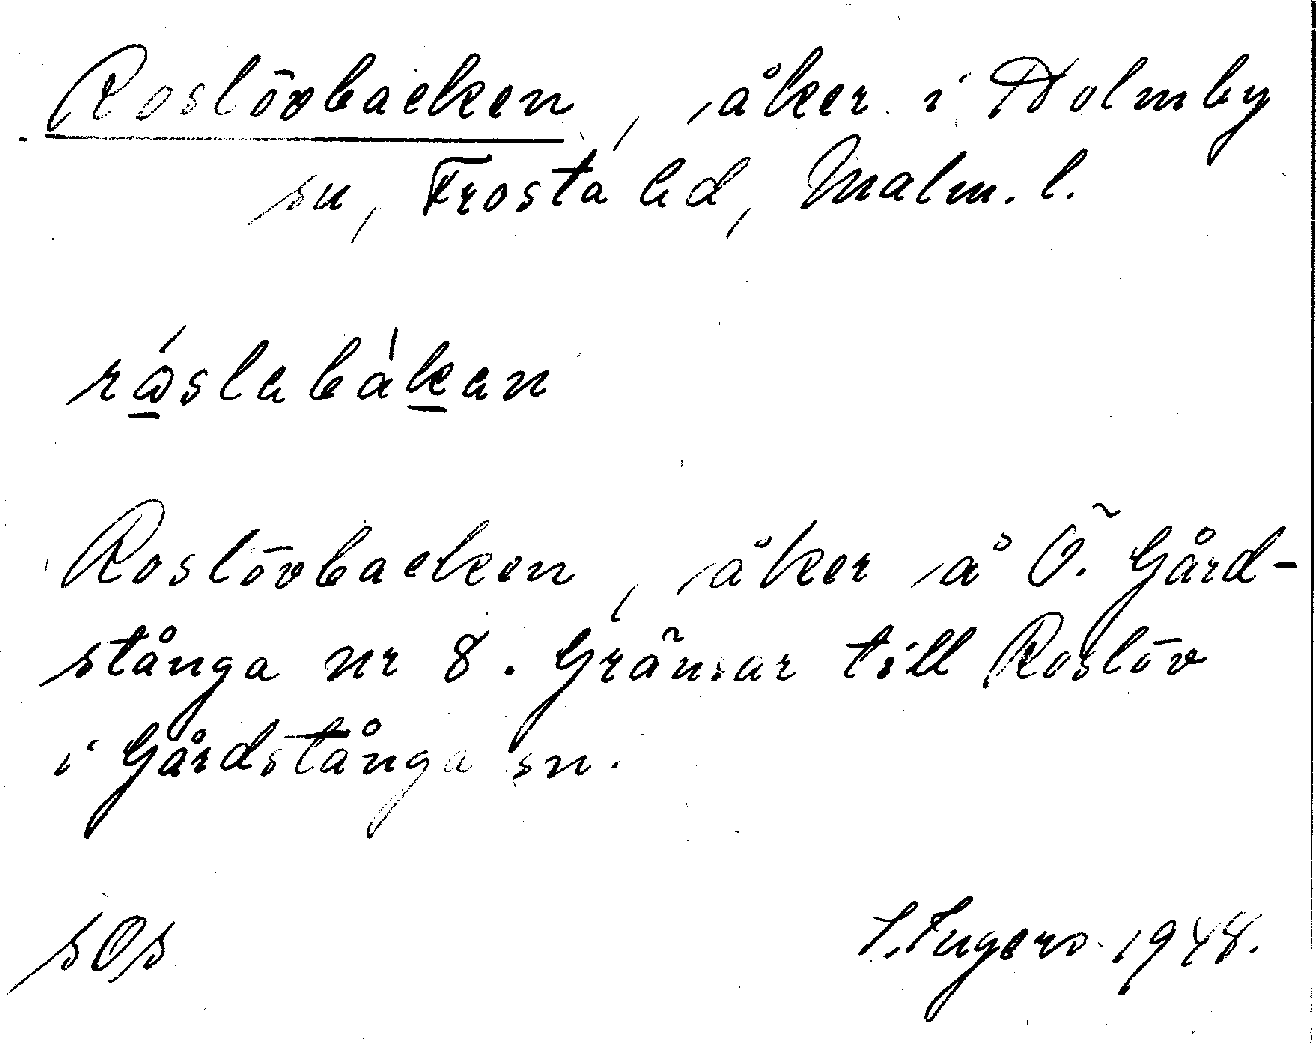 Roslövbacken, åker i Holmby
sn, Frosta hd, Malm. l.
Roslövbacken, åker å Ö. Gård-
stånga nr 8. Gränsar till Roslöv
i Gårdstånga sn.
sOs
S. Ingers 1948.